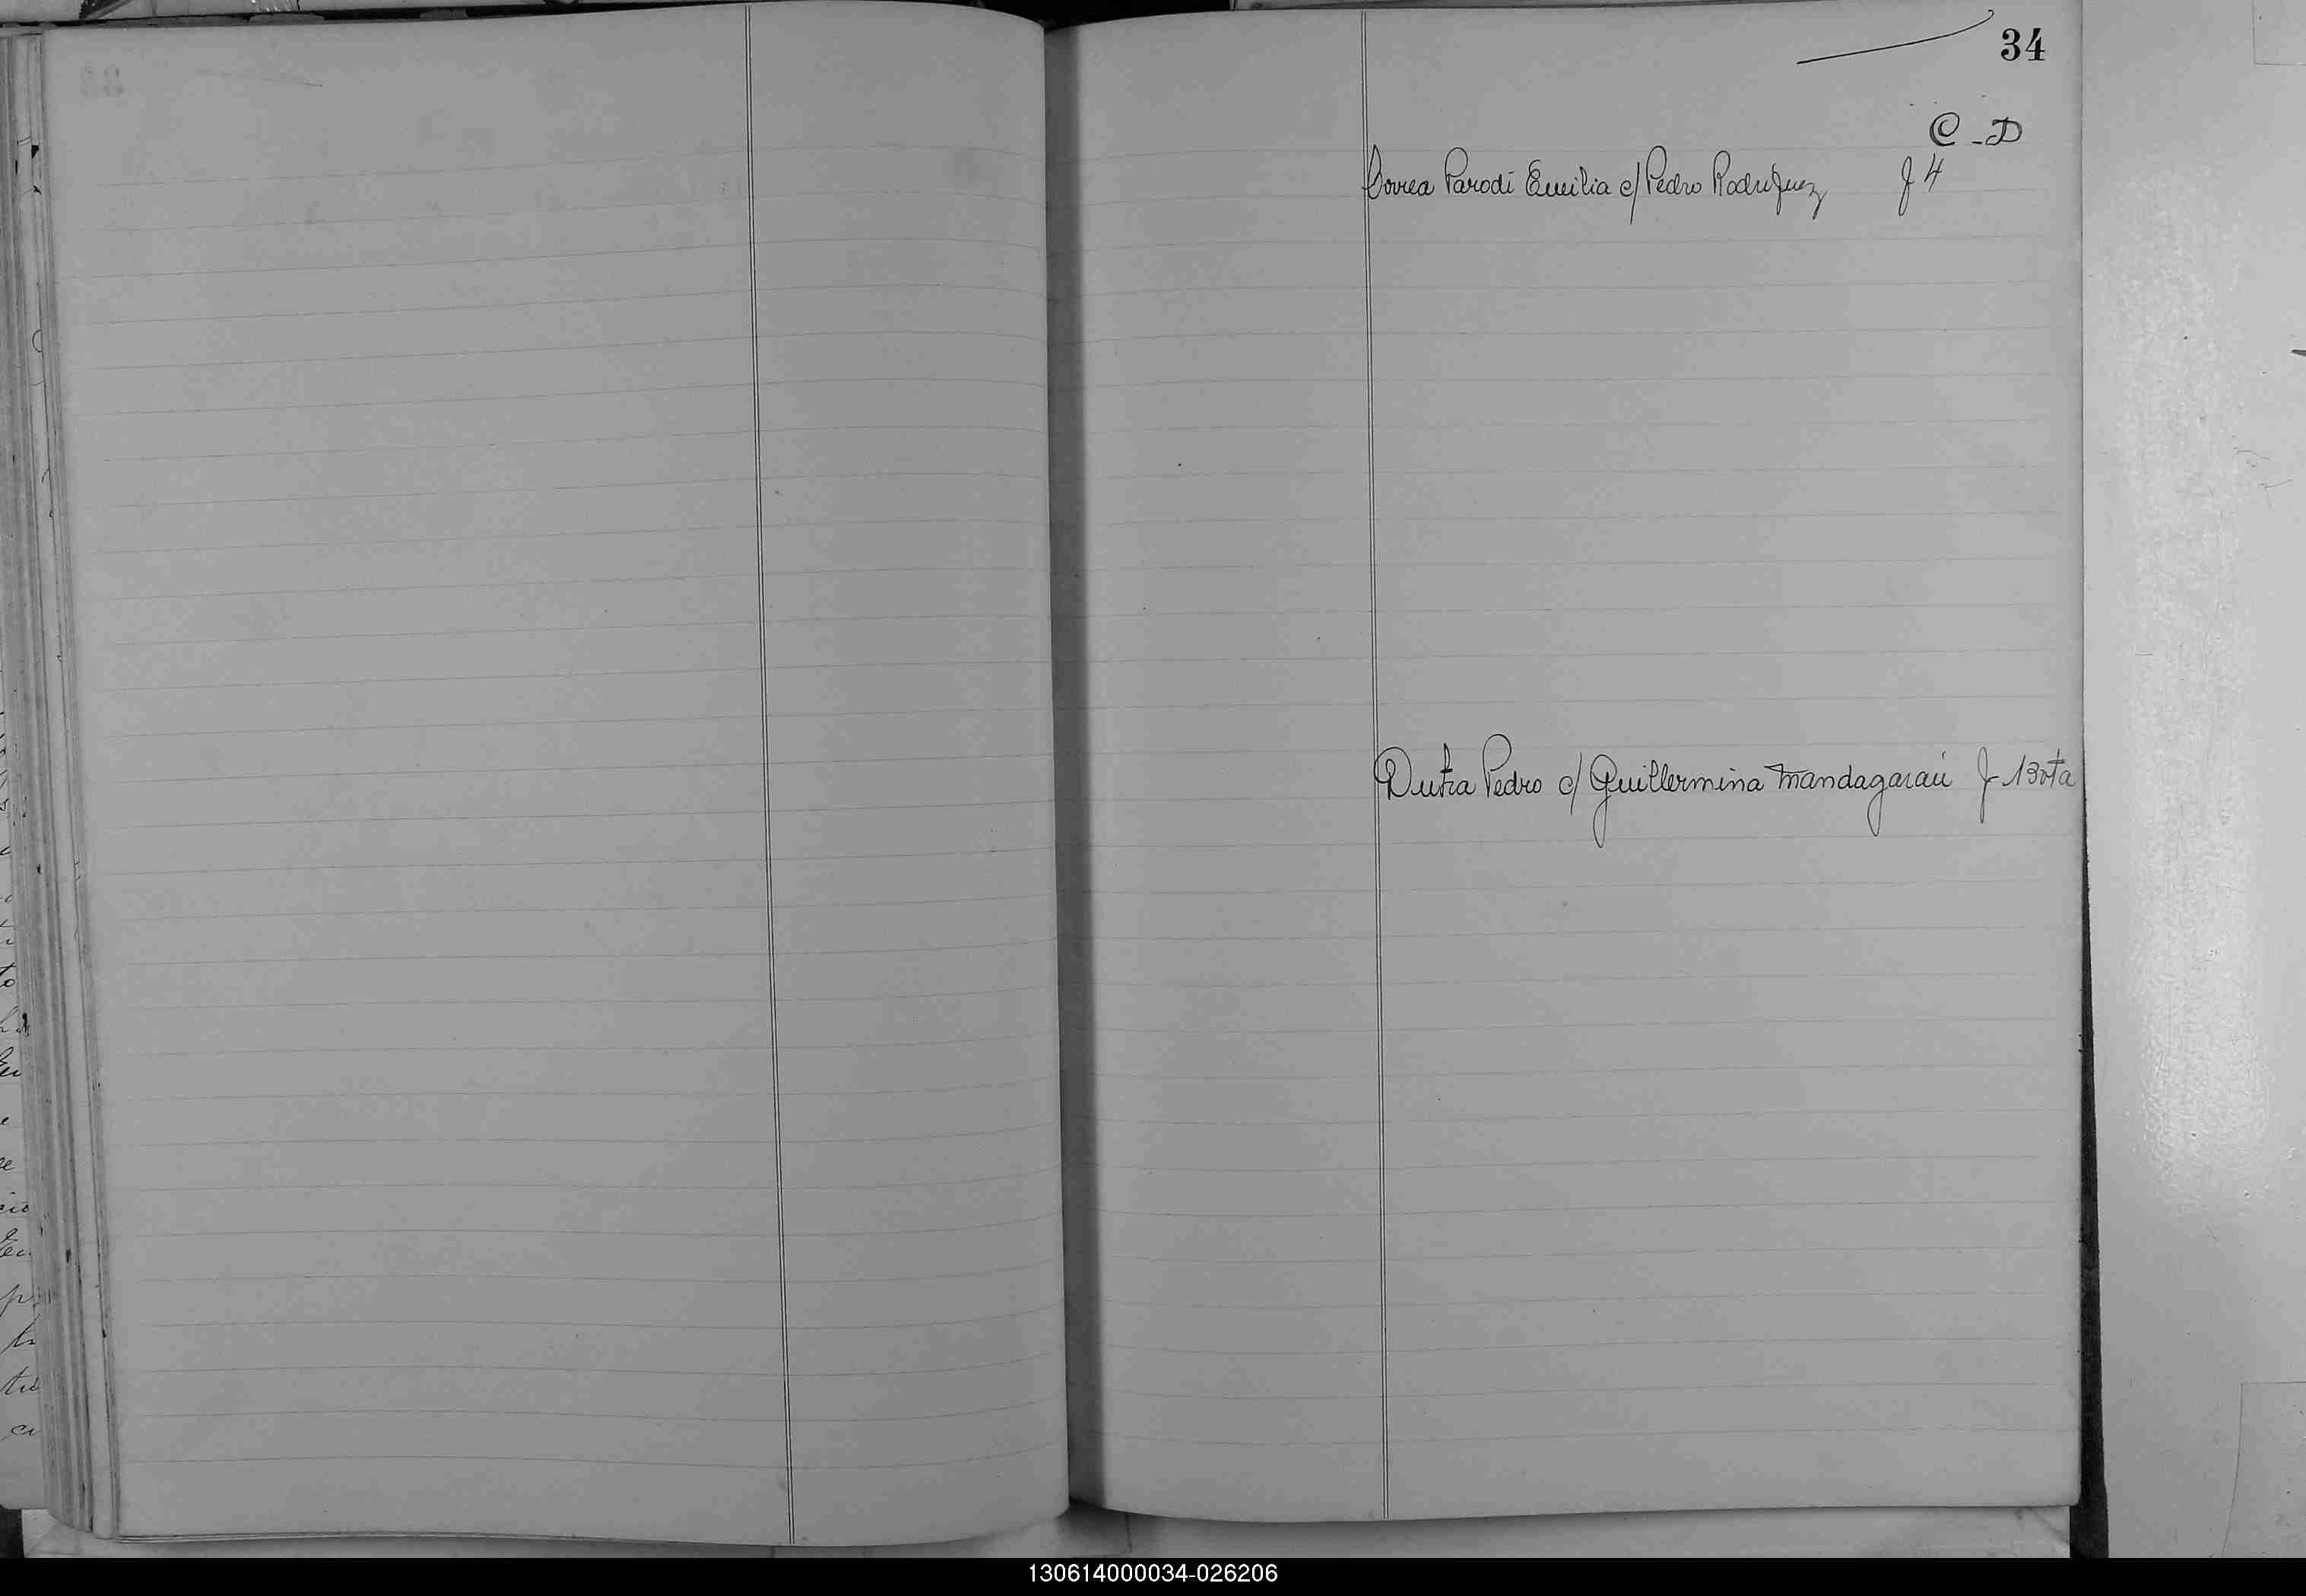 34
C - D
Correa Parodi Emilia c/ Pedro Rodriguez f 4
Dutra Pedro c/ Guillermina Mandagarau f 13 vta
130614000034-026206